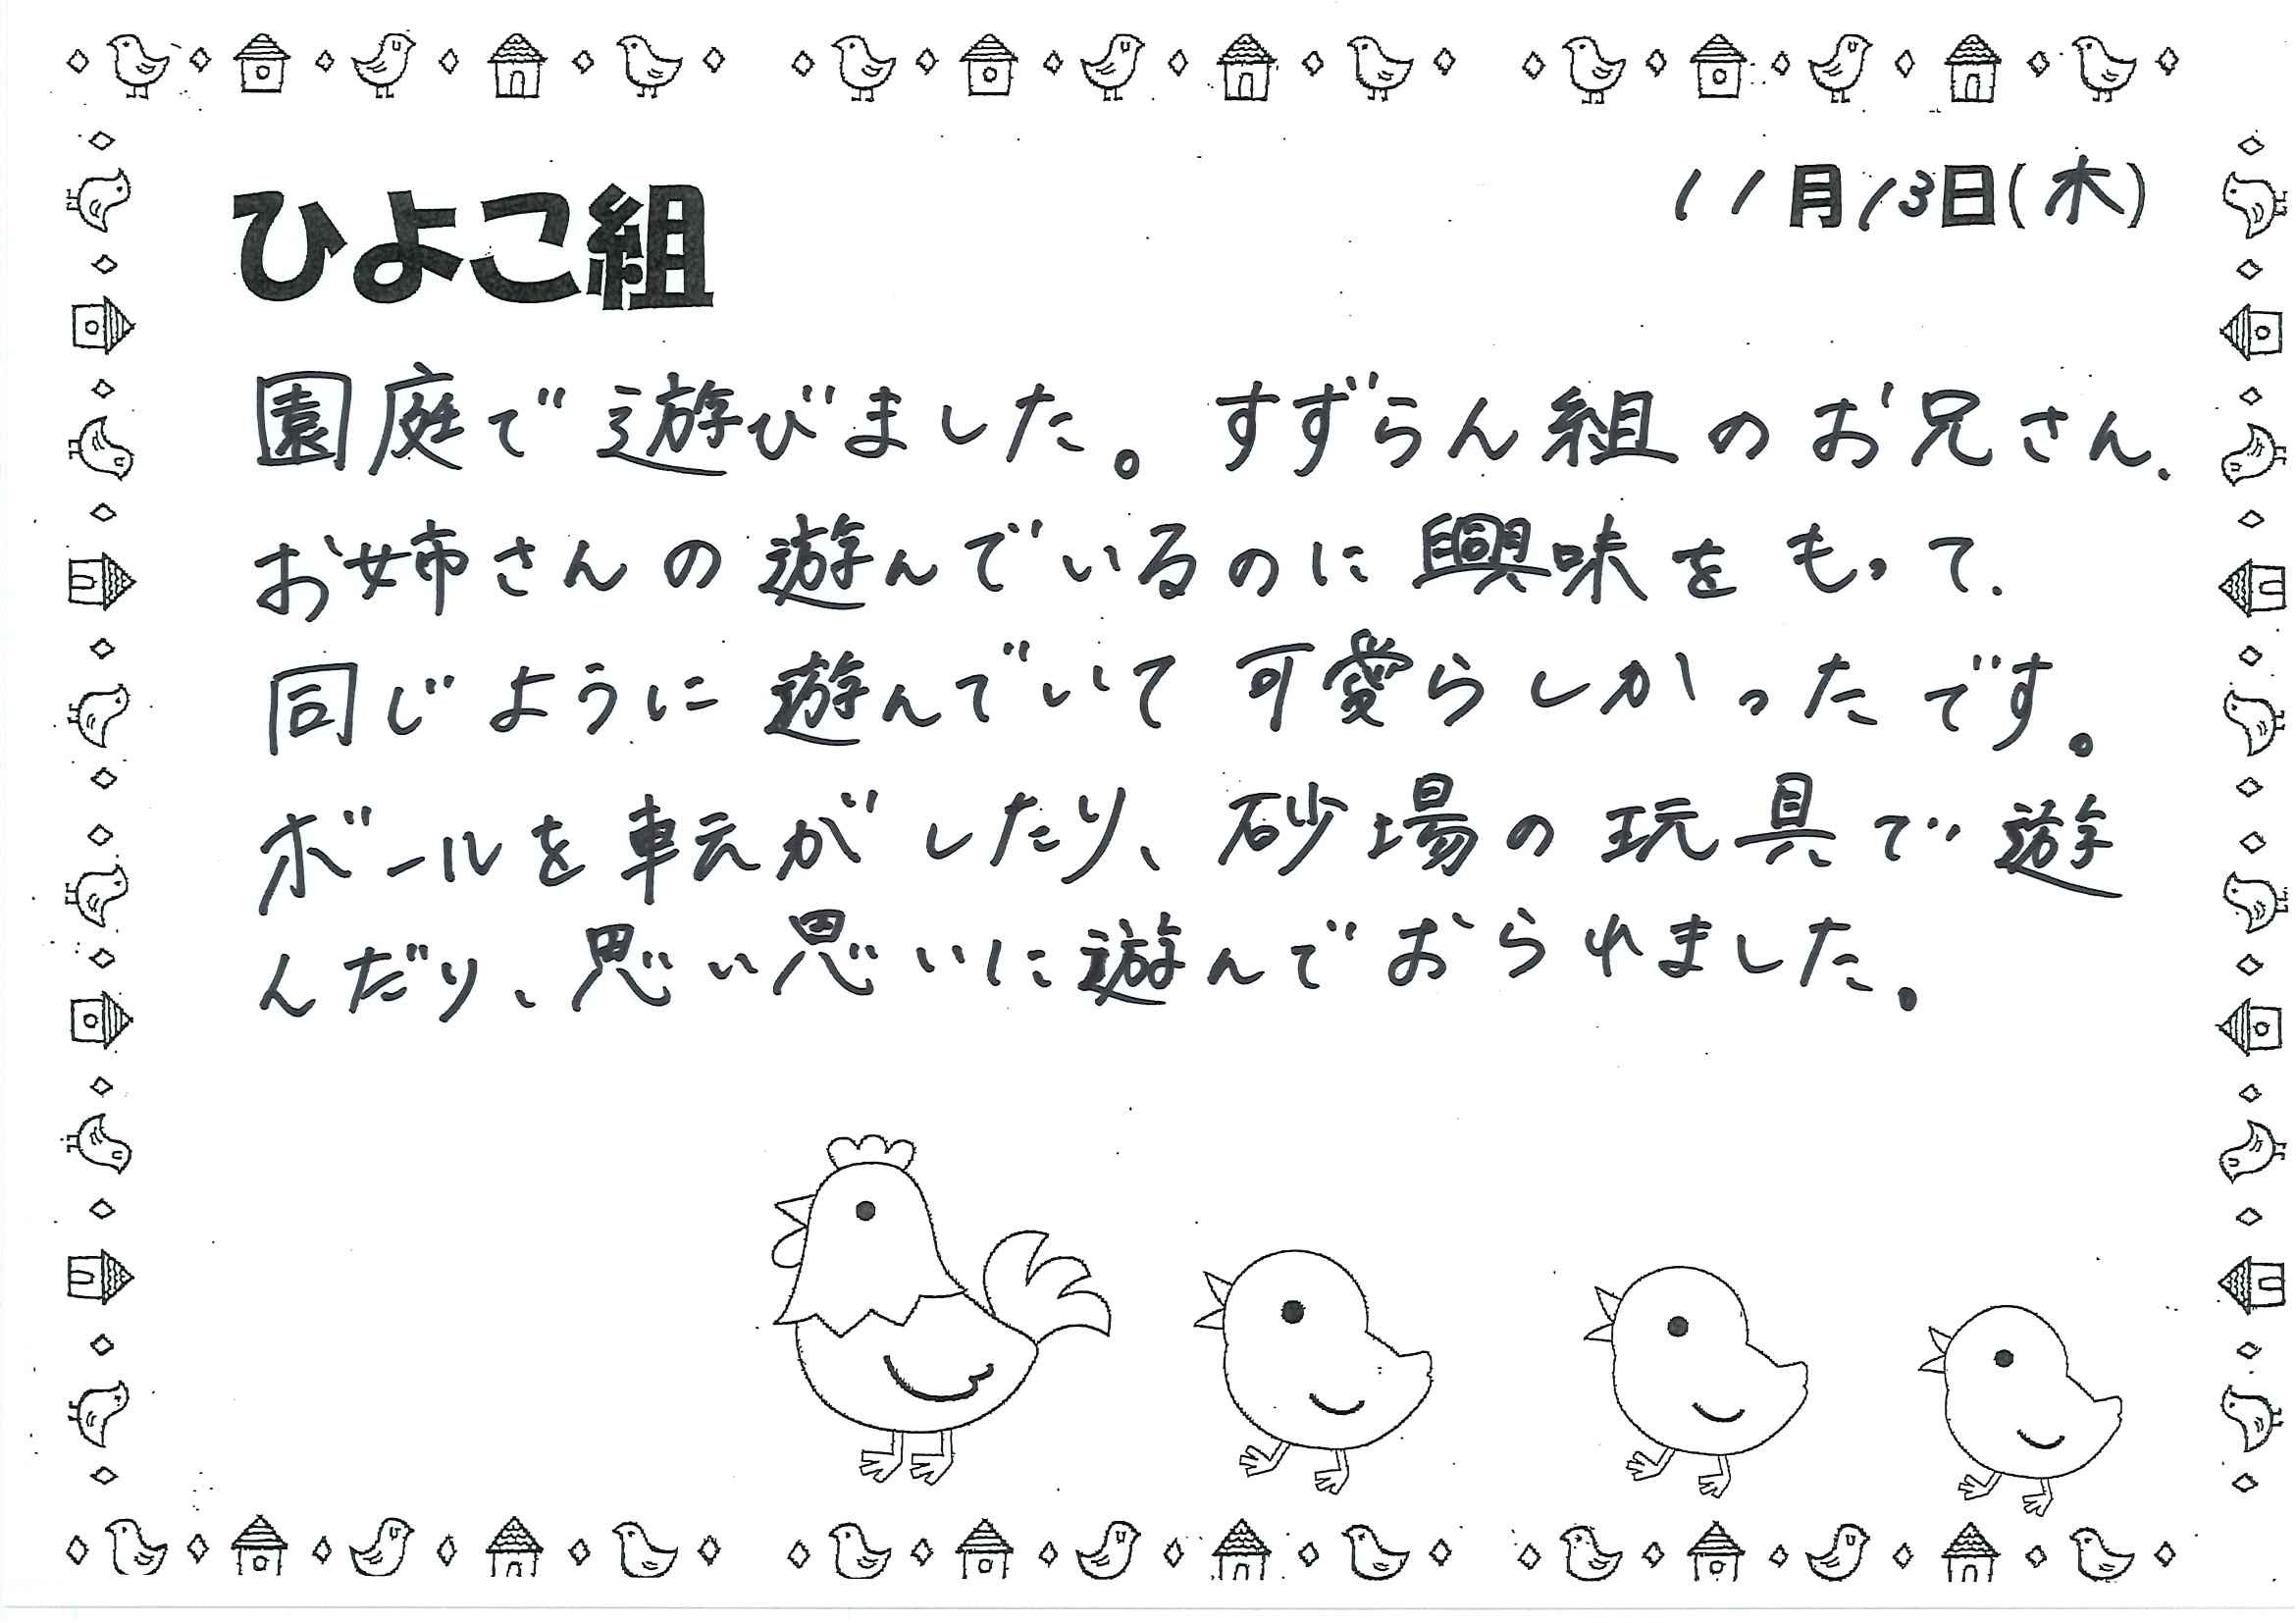 11月13日(木)
ひよこ組
園庭で遊びました。すずらん組のお兄さん、
お姉さんの遊んでいるのに興味をもって、
同じように遊んでいて可愛らしかったです。
ボールを転がしたり、砂場の玩具で遊
んだり、思い思いに遊んでおられました。